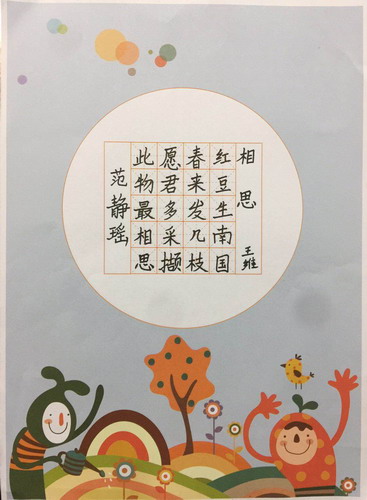 相思
王维
红豆生南国
春来发几枝
愿君多采撷
此物最相思
范静瑶